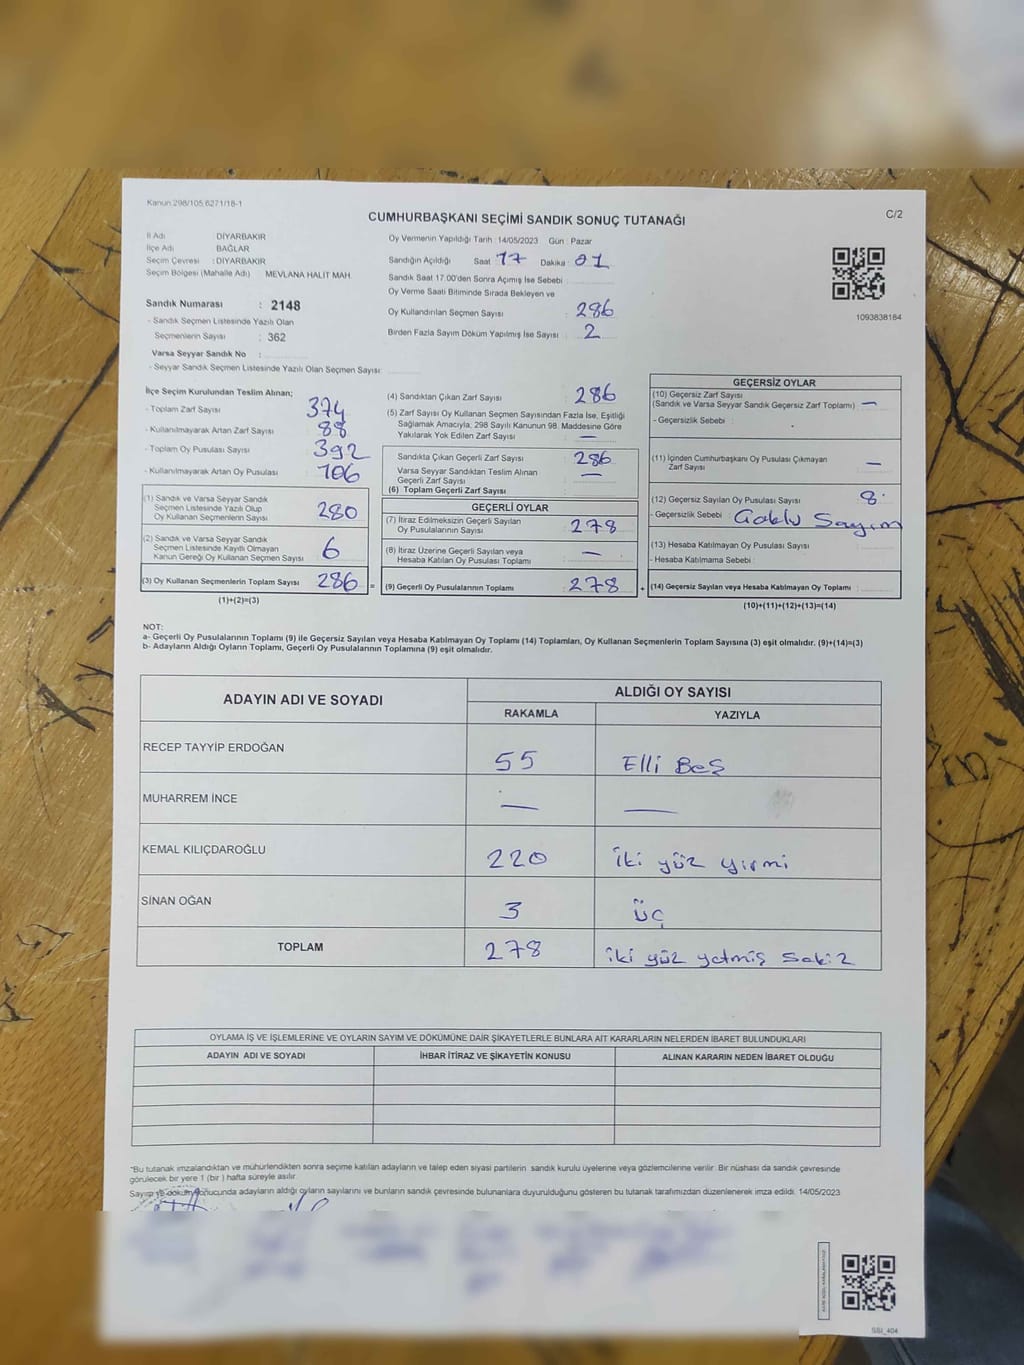 Kanun 298/105,6271/16-1
CUMHURBAŞKANI SEÇİMİ SANDIK SONUÇ TUTANAĞI
C/2
İl Adı : DİYARBAKIR
İlçe Adı : BAĞLAR
Seçim Çevresi : DİYARBAKIR
Seçim Bölgesi (Mahalle Adı) MEVLANA HALIT MAH.
Sandık Numarası : 2148
- Sandık Seçmen Listesinde Yazılı Olan
Seçmenlerin Sayısı : 362
Varsa Seyyar Sandık No :
- Seyyar Sandık Seçmen Listesinde Yazılı Olan Seçmen Sayısı:
Oy Vermenin Yapıldığı Tarih : 14/05/2023 Gün : Pazar
Sandığın Açıldığı Saat : 17 Dakika : 01
Sandık Saat 17.00'den Sonra Açımış İse Sebebi :
Oy Verme Saati Bitiminde Sırada Bekleyen ve
Oy Kullandırılan Seçmen Sayısı : 286
Birden Fazla Sayım Döküm Yapılmış İse Sayısı : 2
1093838184
İlçe Seçim Kurulundan Teslim Alınan;
- Toplam Zarf Sayısı : 374
- Kullanılmayarak Artan Zarf Sayısı : 88
- Toplam Oy Pusulası Sayısı : 392
- Kullanılmayarak Artan Oy Pusulası : 106
(1) Sandık ve Varsa Seyyar Sandık
Seçmen Listesinde Yazılı Olup
Oy Kullanan Seçmenlerin Sayısı : 280
(2) Sandık ve Varsa Seyyar Sandık
Seçmen Listesinde Kayıtlı Olmayan
Kanun Gereği Oy Kullanan Seçmen Sayısı : 6
(3) Oy Kullanan Seçmenlerin Toplam Sayısı : 286 =
(1)+(2)=(3)
(4) Sandıktan Çıkan Zarf Sayısı : 286
(5) Zarf Sayısı Oy Kullanan Seçmen Sayısından Fazla İse, Eşitliği
Sağlamak Amacıyla, 298 Sayılı Kanunun 98. Maddesine Göre
Yakılarak Yok Edilen Zarf Sayısı : —
Sandıkta Çıkan Geçerli Zarf Sayısı : 286
Varsa Seyyar Sandıktan Teslim Alınan
Geçerli Zarf Sayısı : —
(6) Toplam Geçerli Zarf Sayısı :
GEÇERLİ OYLAR
(7) İtiraz Edilmeksizin Geçerli Sayılan
Oy Pusulalarının Sayısı : 278
(8) İtiraz Üzerine Geçerli Sayılan veya
Hesaba Katılan Oy Pusulası Toplamı : —
(9) Geçerli Oy Pusulalarının Toplamı : 278 +
GEÇERSİZ OYLAR
(10) Geçersiz Zarf Sayısı
(Sandık ve Varsa Seyyar Sandık Geçersiz Zarf Toplamı) : —
- Geçersizlik Sebebi :
(11) İçinden Cumhurbaşkanı Oy Pusulası Çıkmayan
Zarf Sayısı : —
(12) Geçersiz Sayılan Oy Pusulası Sayısı : 8
- Geçersizlik Sebebi : Sayım
(13) Hesaba Katılmayan Oy Pusulası Sayısı :
- Hesaba Katılmama Sebebi :
(14) Geçersiz Sayılan veya Hesaba Katılmayan Oy Toplamı :
(10)+(11)+(12)+(13)=(14)
NOT:
a- Geçerli Oy Pusulalarının Toplamı (9) ile Geçersiz Sayılan veya Hesaba Katılmayan Oy Toplamı (14) Toplamları, Oy Kullanan Seçmenlerin Toplam Sayısına (3) eşit olmalıdır. (9)+(14)=(3)
b- Adayların Aldığı Oyların Toplamı, Geçerli Oy Pusulalarının Toplamına (9) eşit olmalıdır.
ADAYIN ADI VE SOYADI ALDIĞI OY SAYISI
RAKAMLA YAZIYLA
RECEP TAYYİP ERDOĞAN 55 Elli Beş
MUHARREM İNCE — —
KEMAL KILIÇDAROĞLU 220 iki yüz yirmi
SİNAN OĞAN 3 üç
TOPLAM 278 iki yüz yetmiş sekiz
OYLAMA İŞ VE İŞLEMLERİNE VE OYLARIN SAYIM VE DÖKÜMÜNE DAİR ŞİKAYETLERLE BUNLARA AİT KARARLARIN NELERDEN İBARET BULUNDUKLARI
ADAYIN ADI VE SOYADI İHBAR İTİRAZ VE ŞİKAYETİN KONUSU ALINAN KARARIN NEDEN İBARET OLDUĞU
*Bu tutanak imzalandıktan ve mühürlendikten sonra seçime katılan adayların ve talep eden siyasi partilerin sandık kurulu üyelerine veya gözlemcilerine verilir. Bir nüshası da sandık çevresinde
görülecek bir yere 1 (bir ) hafta süreyle asılır.
Sayım ve döküm sonucunda adayların aldığı oyların sayılarını ve bunların sandık çevresinde bulunanlara duyurulduğunu gösteren bu tutanak tarafımızdan düzenlenerek imza edildi. 14/05/2023
SSI_404